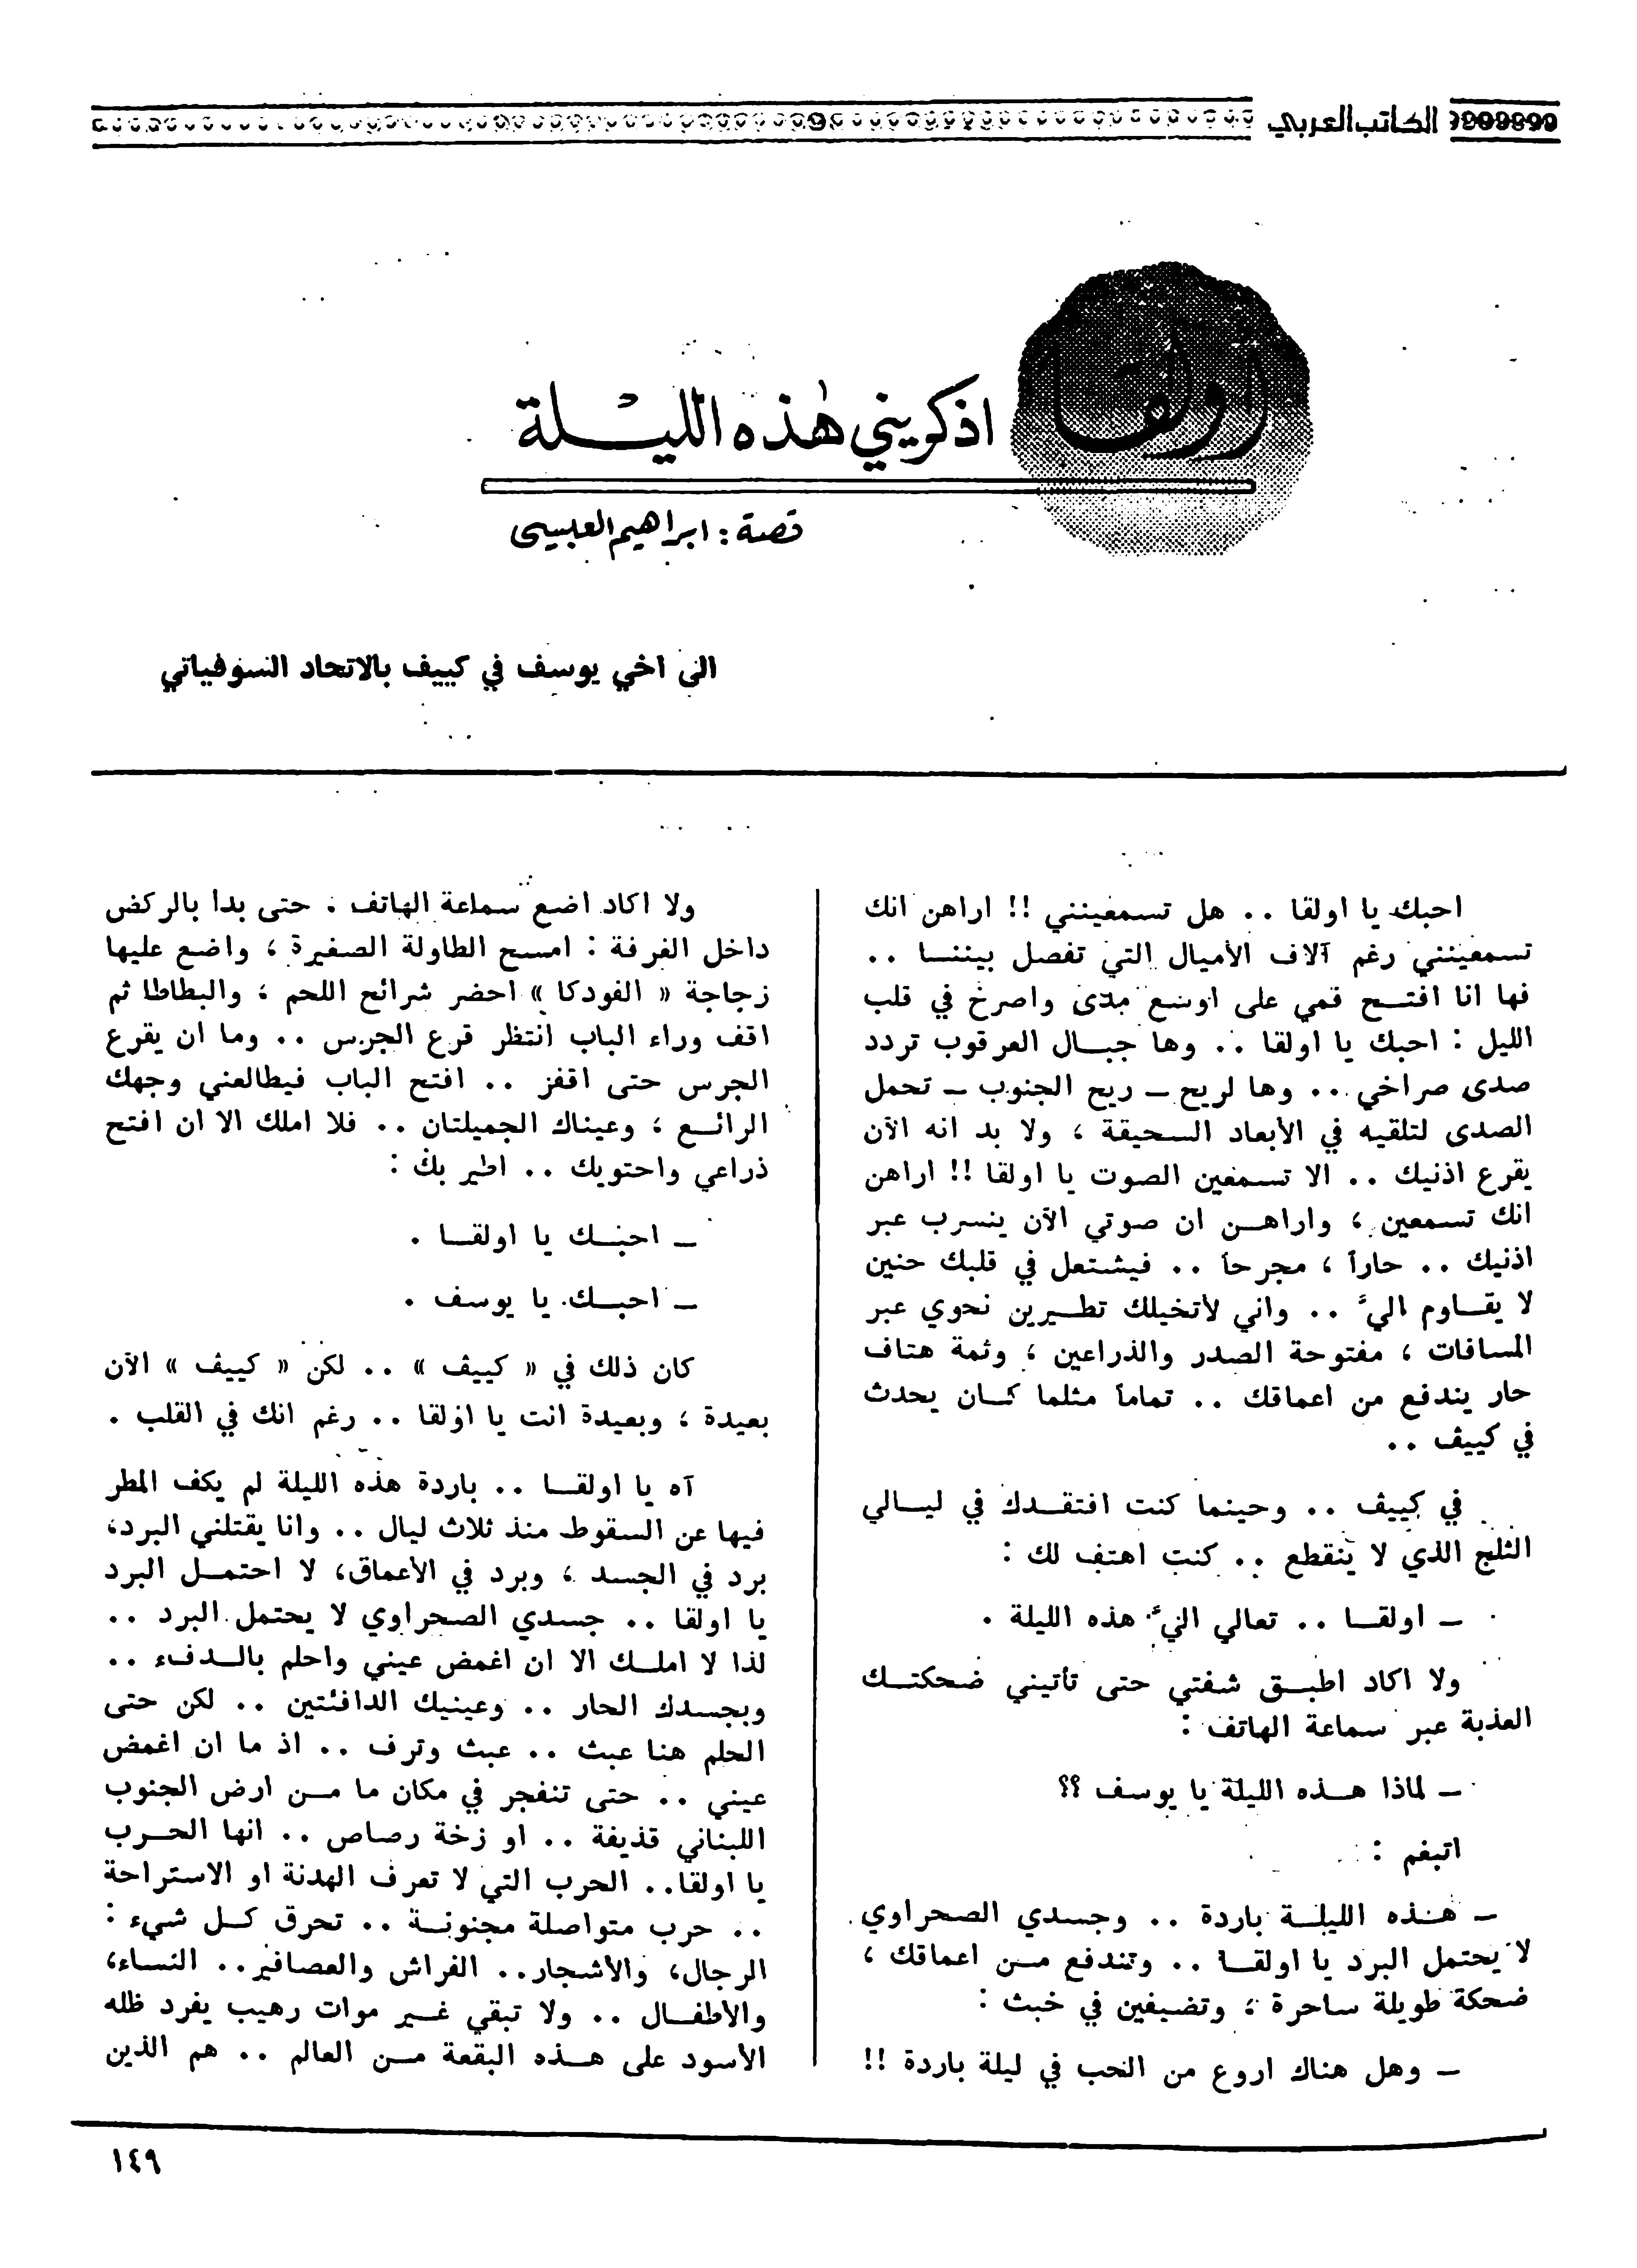 الكاتب العربي
اولفا
اذكريني هذه الليلة
قصة : ابراهيم العبسي
الى اخي يوسف في كييف بالاتحاد السوفياتي
احبك يا اولقا .. هل تسمعينني !! اراهن انك
تسمعينني رغم آلاف الأميال التي تفصل بيننا ..
فها انا افتح قمي على اوسع مدى واصرخ في قلب
الليل : احبك يا اولقا .. وها جبال العرقوب تردد
صدى صراخي .. وها لريح – ريح الجنوب – تحمل
الصدى لتلقيه في الأبعاد السحيقة ، ولا بد انه الآن
يقرع اذنيك .. الا تسمعين الصوت يا اولقا !! اراهن
انك تسمعين ، واراهن ان صوتي الآن ينسرب عبر
اذنيك .. حاراً ، مجرحاً .. فيشتعل في قلبك حنين
لا يقاوم اليّ .. واني لأتخيلك تطيرين نحوي عبر
المسافات ، مفتوحة الصدر والذراعين ، وثمة هتاف
حار يندفع من اعماقك .. تماماً مثلما كان يحدث
في كييف ..
في كييف .. وحينما كنت افتقدك في ليالي
الثلج الذي لا ينقطع .. كنت اهتف لك :
– اولقا .. تعالي اليّ هذه الليلة .
ولا اكاد اطبق شفتي حتى تأتيني ضحكتك
العذبة عبر سماعة الهاتف :
– لماذا هذه الليلة يا يوسف ؟؟
اتبغم :
– هذه الليلة باردة .. وجسدي الصحراوي
لا يحتمل البرد يا اولقا .. وتندفع من اعماقك ،
ضحكة طويلة ساحرة ، وتضيفين في خبث :
– وهل هناك اروع من الحب في ليلة باردة !!
ولا اكاد اضع سماعة الهاتف . حتى بدأ بالركض
داخل الغرفة : امسح الطاولة الصغيرة ، واضع عليها
زجاجة « الفودكا » احضر شرائح اللحم ، والبطاطا ثم
اقف وراء الباب انتظر قرع الجرس .. وما ان يقرع
الجرس حتى اقفز .. افتح الباب فيطالعني وجهك
الرائع ، وعيناك الجميلتان .. فلا املك الا ان افتح
ذراعي واحتويك .. اطير بك :
– احبك يا اولقا .
– احبك يا يوسف .
كان ذلك في « كييف » .. لكن « كييف » الآن
بعيدة ، وبعيدة انت يا اولقا .. رغم انك في القلب .
آه يا اولقا .. باردة هذه الليلة لم يكف المطر
فيها عن السقوط منذ ثلاث ليال .. وانا يقتلني البرد،
برد في الجسد ، وبرد في الأعماق، لا احتمل البرد
يا اولقا .. جسدي الصحراوي لا يحتمل البرد ..
لذا لا املك الا ان اغمض عيني واحلم بالدفء ..
وبجسدك الحار .. وعينيك الدافئتين .. لكن حتى
الحلم هنا عبث .. عبث وترف .. اذ ما ان اغمض
عيني .. حتى تنفجر في مكان ما من ارض الجنوب
اللبناني قذيفة .. او زخة رصاص .. انها الحرب
يا اولقا.. الحرب التي لا تعرف الهدنة او الاستراحة
.. حرب متواصلة مجنونة .. تحرق كل شيء :
الرجال، والأشجار.. الفراش والعصافير.. النساء،
والأطفال .. ولا تبقي غير موات رهيب يفرد ظله
الأسود على هذه البقعة من العالم .. هم الذين
١٤٩